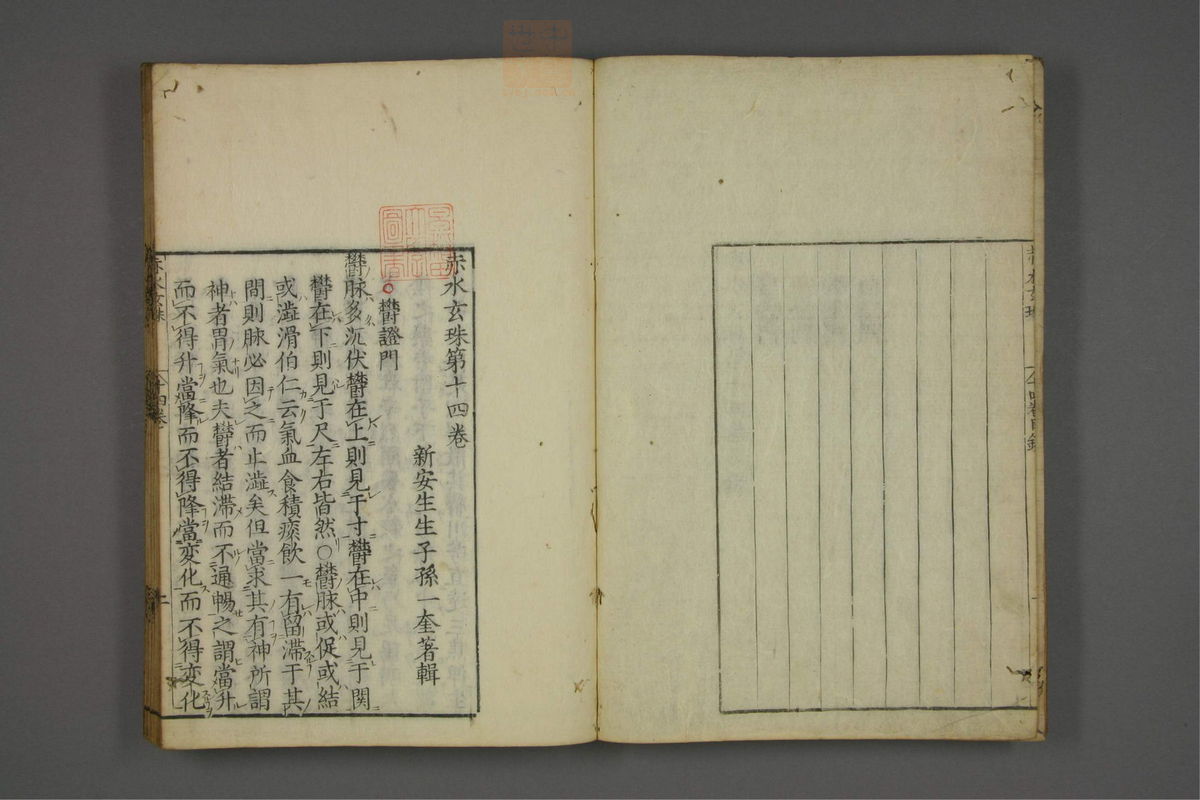 赤水玄珠
赤水玄珠第十四卷
新安生生子孫一奎著輯
○鬱證門
鬱脉多沉伏鬱在上則見于寸鬱在中則見于関
鬱在下則見于尺左右皆然○鬱脉或促或結
或澁滑伯仁云氣血食積痰飲一有留滞于其
間則脉必因之而止澁矣但當求其有神所謂
神者胃氣也夫鬱者結滞而不通暢之謂當升
而不得升當降而不得降當変化而不得変化
赤水玄珠
十四卷